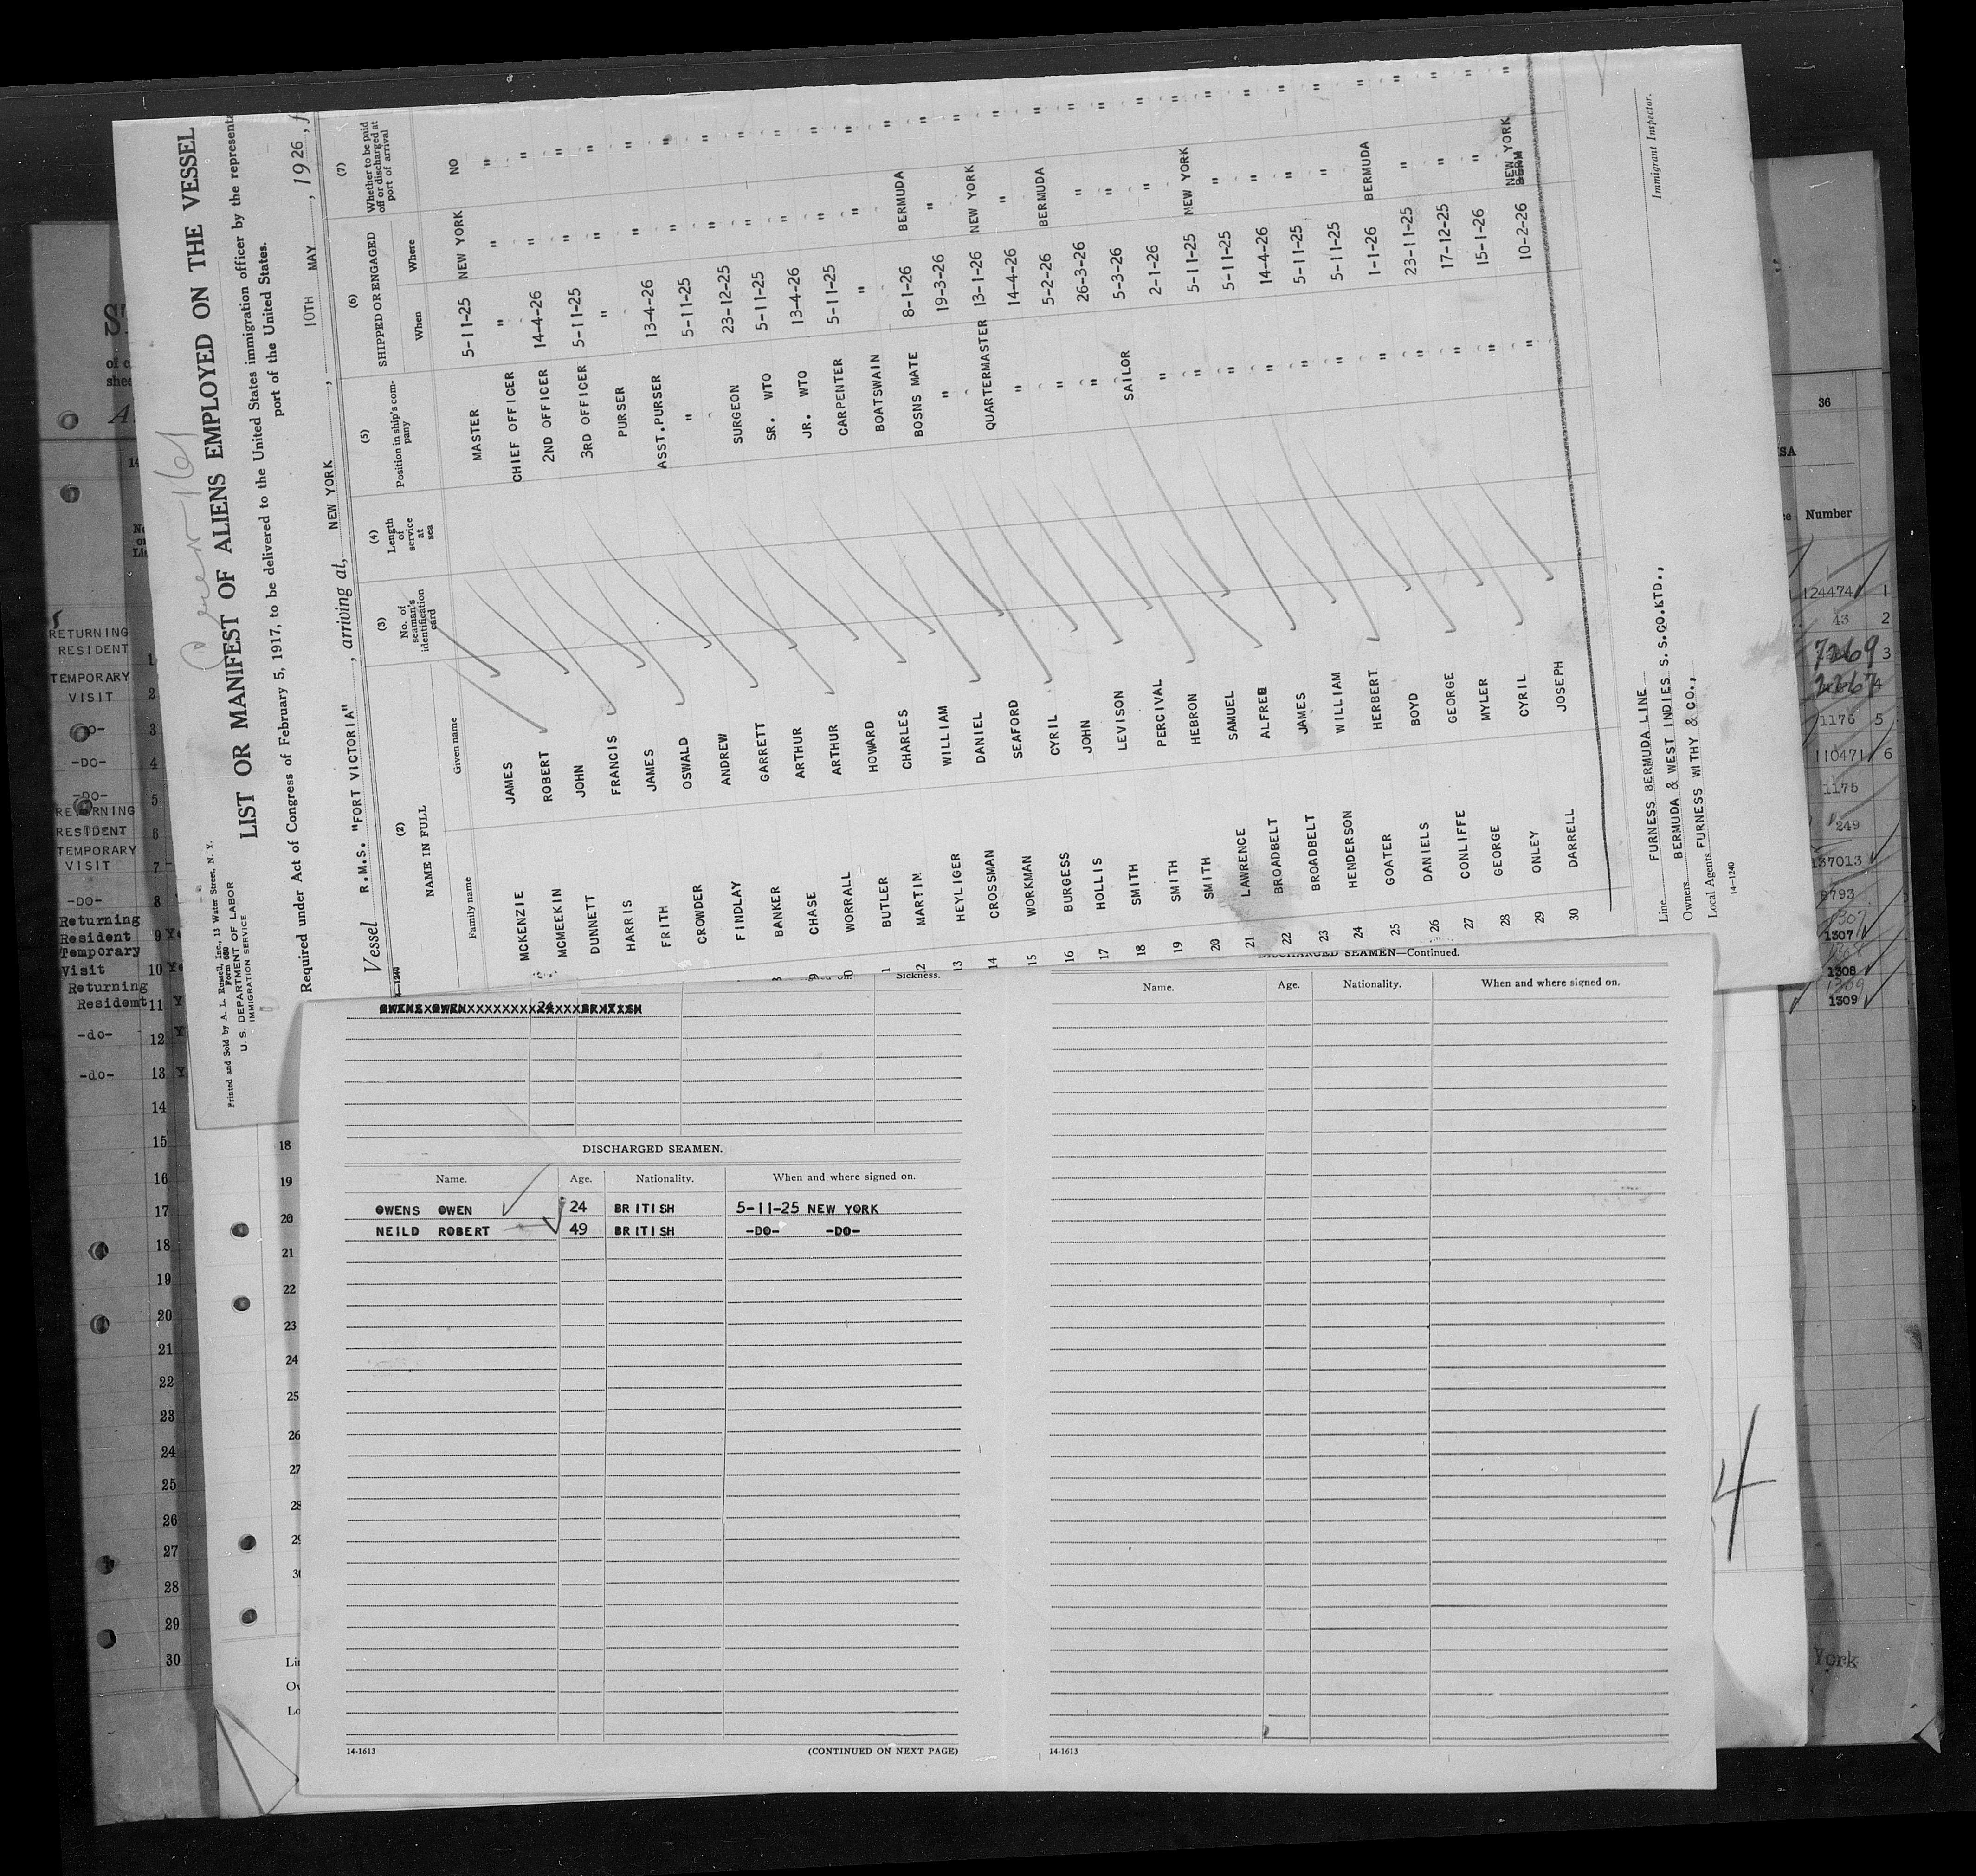 Printed and Sold by A. L. Russell, Inc., 13 Water Street, N. Y.
Form 680
U. S. DEPARTMENT OF LABOR
IMMIGRATION SERVICE
LIST OR MANIFEST OF ALIENS EMPLOYED ON THE VESSEL
Required under Act of Congress of February 5, 1917, to be delivered to the United States immigration officer by the representa
port of the United States.
Vessel R.M.S. "FORT VICTORIA", arriving at, NEW YORK, 10TH MAY, 1926, f
(2) (3) (4) (5) (6) (7)
NAME IN FULL No. of seaman's identification card Length of service at sea Position in ship's company SHIPPED OR ENGAGED Whether to be paid off or discharged at port of arrival
Family name Given name When Where
MCKENZIE JAMES MASTER 5-11-25 NEW YORK NO
MCMEEKIN ROBERT CHIEF OFFICER " " "
DUNNETT JOHN 2ND OFFICER 14-4-26 " "
HARRIS FRANCIS 3RD OFFICER 5-11-25 " "
FRITH JAMES PURSER " " "
CROWDER OSWALD ASST.PURSER 13-4-26 " "
FINDLAY ANDREW " 5-11-25 " "
8 BANKER GARRETT SURGEON 23-12-25 " "
9 CHASE ARTHUR SR. WTO 5-11-25 " "
0 WORRALL ARTHUR JR. WTO 13-4-26 " "
1 BUTLER HOWARD CARPENTER 5-11-25 " "
2 MARTIN CHARLES BOATSWAIN " " "
13 HEYLIGER WILLIAM BOSNS MATE 8-1-26 BERMUDA "
14 CROSSMAN DANIEL " 19-3-26 " "
15 WORKMAN SEAFORD QUARTERMASTER 13-1-26 NEW YORK "
16 BURGESS CYRIL " 14-4-26 " "
17 HOLLIS JOHN " 5-2-26 BERMUDA "
18 SMITH LEVISON " 26-3-26 " "
19 SMITH PERCIVAL SAILOR 5-3-26 " "
20 SMITH HEBRON " 2-1-26 " "
21 LAWRENCE SAMUEL " 5-11-25 NEW YORK "
22 BROADBELT ALFRED " 5-11-25 " "
23 BROADBELT JAMES " 14-4-26 " "
24 HENDERSON WILLIAM " 5-11-25 " "
25 GOATER HERBERT " 5-11-25 " "
26 DANIELS BOYD " 1-1-26 BERMUDA "
27 CONLIFFE GEORGE " 23-11-25 " "
28 GEORGE MYLER " 17-12-25 " "
29 ONLEY CYRIL " 15-1-26 " "
30 DARRELL JOSEPH " 10-2-26 NEW YORK "
Line FURNESS BERMUDA LINE
Owners BERMUDA & WEST INDIES S.S.CO.KTD.,
Local Agents FURNESS WITHY & CO.,
14-1240
Immigrant Inspector.
Sickness.
OWENS OWEN 24 BRITISH
DISCHARGED SEAMEN.
Name. Age. Nationality. When and where signed on.
OWENS OWEN 24 BRITISH 5-11-25 NEW YORK
NEILD ROBERT 49 BRITISH -DO- -DO-
14-1613 (CONTINUED ON NEXT PAGE)
DISCHARGED SEAMEN—Continued.
Name. Age. Nationality. When and where signed on.
14-1613
RETURNING
RESIDENT 1
TEMPORARY
VISIT 2
-DO- 3
-DO- 4
-DO- 5
RETURNING
RESIDENT 6
TEMPORARY
VISIT 7
-DO- 8
Returning
Resident 9
Temporary
Visit 10
Returning
Resident 11
-do- 12
-do- 13
14
15
16
17
18
19
20
21
22
23
24
25
26
27
28
29
30
18
19
20
21
22
23
24
25
26
27
28
29
36
Number
124474 1
43 2
7269 3
2267 4
1176 5
110471 6
1175
249
137013
8793
1307
1308
1309
4
York